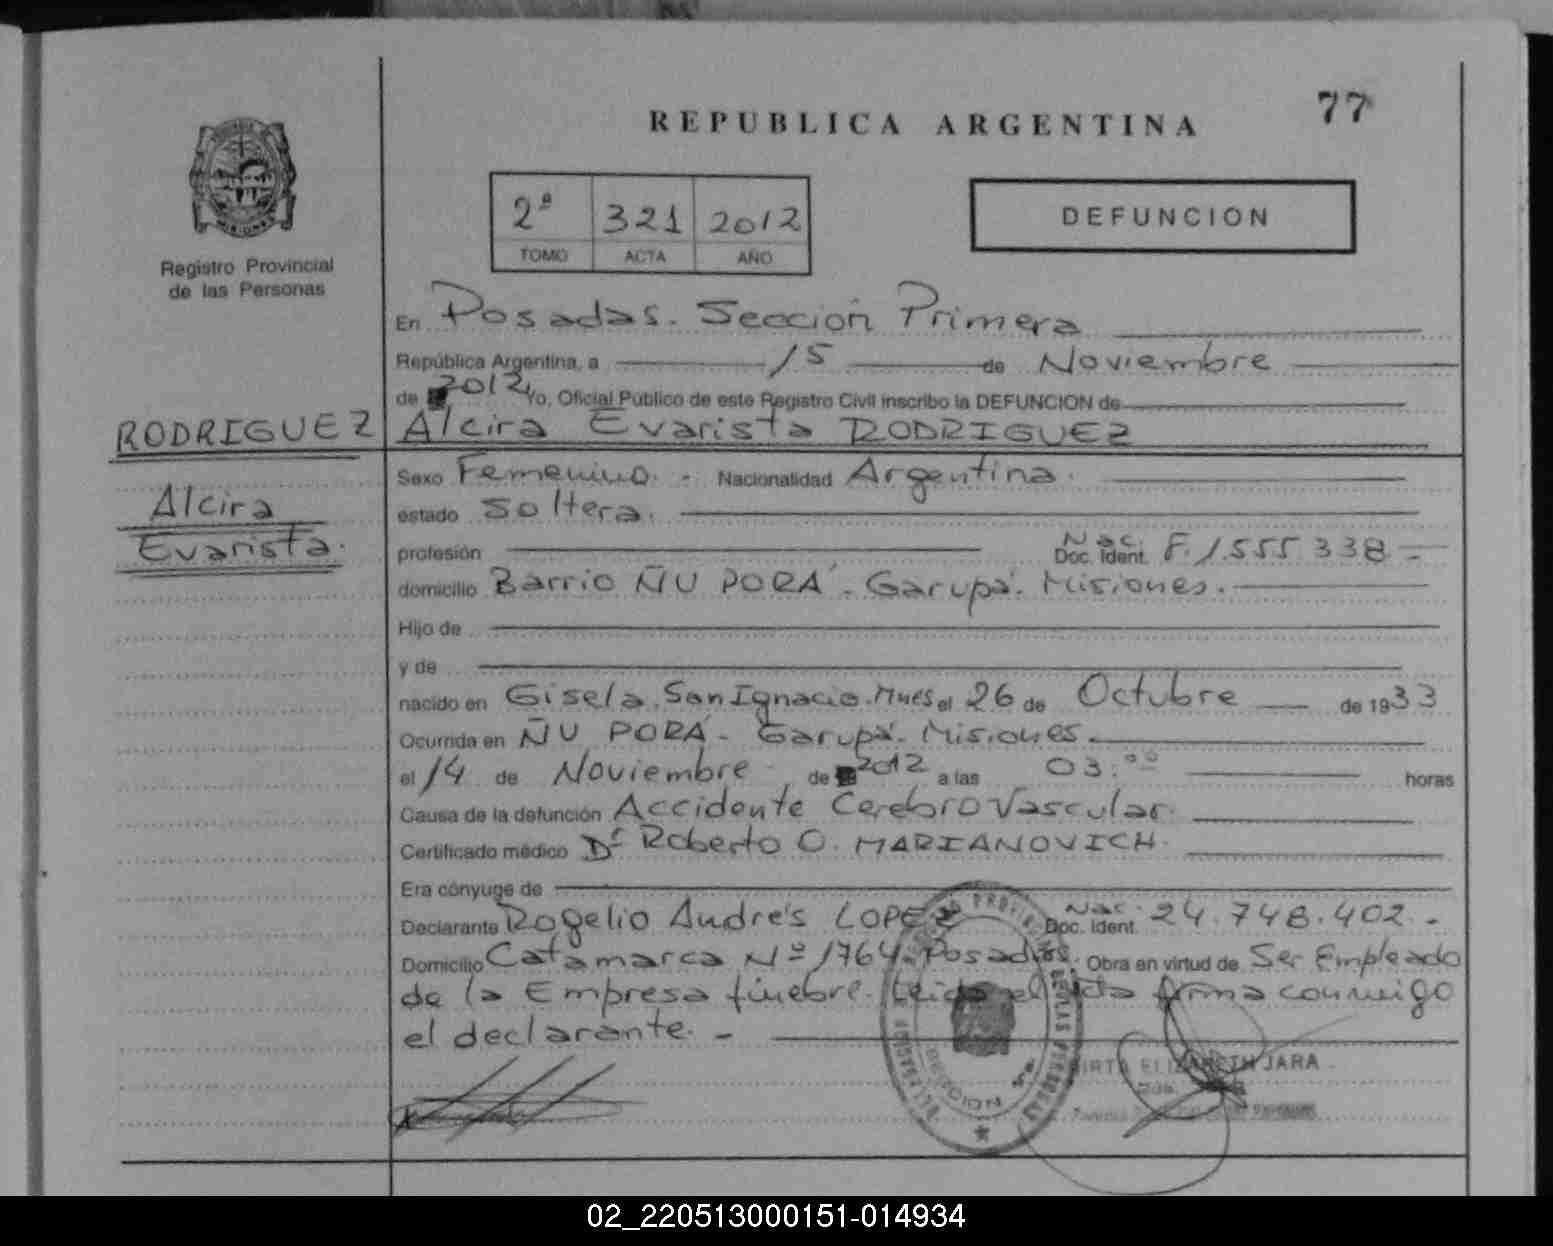 77
REPUBLICA ARGENTINA
MISIONES
Registro Provincial
de las Personas
2ª 321 2012
TOMO ACTA AÑO
DEFUNCION
En Posadas. Sección Primera
República Argentina, a 15 de Noviembre
de 2012 Yo, Oficial Público de este Registro Civil inscribo la DEFUNCION de
RODRIGUEZ Alcira Evarista RODRIGUEZ
Alcira
Evarista.
Sexo Femenino. - Nacionalidad Argentina.
estado Soltera.
profesión Nac. Doc. Ident. F. 1.555.338 -
domicilio Barrio ÑU PORÁ - Garupá. Misiones.
Hijo de
y de
nacido en Gisela. San Ignacio. Mnes el 26 de Octubre de 1933
Ocurrida en ÑU PORÁ - Garupá. Misiones.
el 14 de Noviembre de 2012 a las 03:00 horas
Causa de la defunción Accidente Cerebro Vascular.
Certificado médico Dr Roberto O. MARIANOVICH.
Era cónyuge de
Declarante Rogelio Andrés LOPEZ Nac. Doc. Ident. 24.748.402. -
Domicilio Catamarca Nº 1764. Posadas. Obra en virtud de Ser Empleado
de la Empresa fúnebre. Leida el acta firma conmigo
el declarante. -
ELIZABETH JARA
02_220513000151-014934